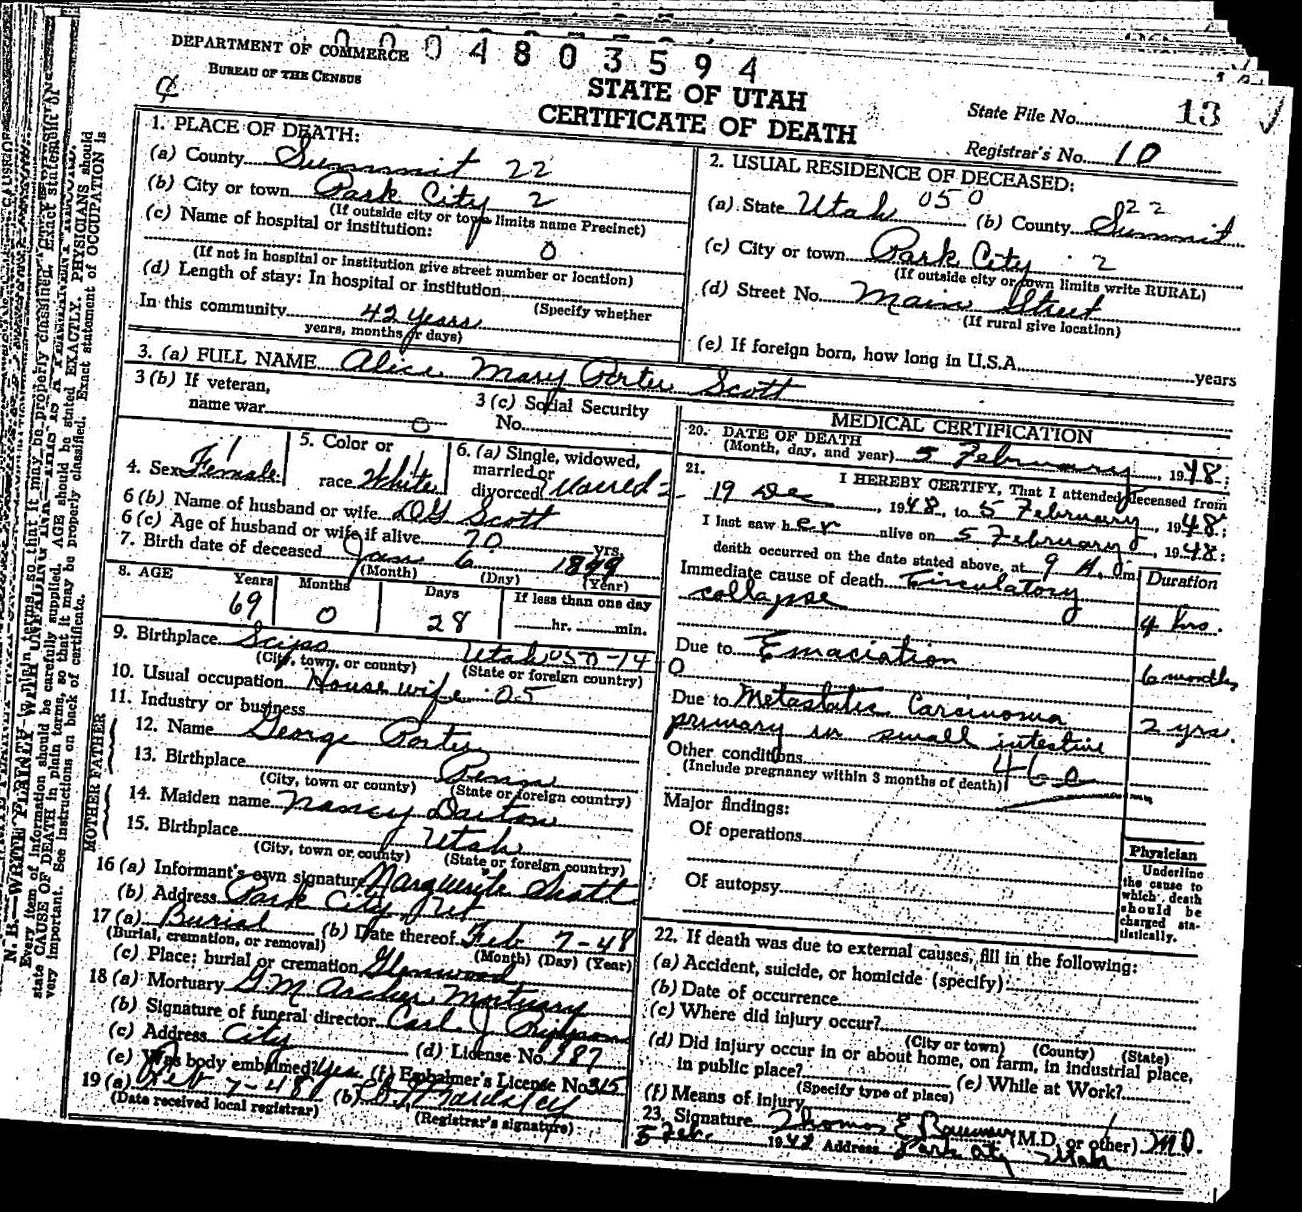 0004803594
DEPARTMENT OF COMMERCE
BUREAU OF THE CENSUS
STATE OF UTAH
CERTIFICATE OF DEATH
State File No. 13
Registrar's No. 10
1. PLACE OF DEATH:
(a) County Summit 22
(b) City or town Park City 2
(If outside city or town limits name Precinct)
(c) Name of hospital or institution:
0
(If not in hospital or institution give street number or location)
(d) Length of stay: In hospital or institution
(Specify whether
In this community 42 years
years, months or days)
2. USUAL RESIDENCE OF DECEASED:
(a) State Utah 050 (b) County Summit 22
(c) City or town Park City 2
(If outside city or town limits write RURAL)
(d) Street No. Main Street
(If rural give location)
(e) If foreign born, how long in U.S.A. years
3. (a) FULL NAME Alice Mary Porter Scott
3 (b) If veteran,
name war 0
3 (c) Social Security
No.
4. Sex Female 1
5. Color or
race White 1
6. (a) Single, widowed,
married or
divorced Married 2
6 (b) Name of husband or wife DG Scott
6 (c) Age of husband or wife if alive 70 yrs.
7. Birth date of deceased Jan 6
(Month) (Day) (Year)
8. AGE Years Months Days If less than one day
69 0 28 hr. min.
9. Birthplace Scipio Utah 050-14
(City, town, or county) (State or foreign country)
10. Usual occupation Housewife 05
11. Industry or business
FATHER
12. Name George Porter
13. Birthplace Penn
(City, town or county) (State or foreign country)
MOTHER
14. Maiden name Nancy
15. Birthplace Utah
(City, town or county) (State or foreign country)
16 (a) Informant's own signature Marguerite Scott
(b) Address Park City, Ut
17 (a) Burial (b) Date thereof Feb 7-48
(Burial, cremation, or removal) (Month) (Day) (Year)
(c) Place: burial or cremation Glenwood
18 (a) Mortuary G M Archer Mortuary
(b) Signature of funeral director Carl J
(c) Address City (d) License No. 187
(e) Was body embalmed? Yes (f) Embalmer's License No. 315
19 (a) Feb 7-48 (b)
(Date received local registrar) (Registrar's signature)
MEDICAL CERTIFICATION
20. DATE OF DEATH
(Month, day, and year) 5 February 1948;
21. I HEREBY CERTIFY, That I attended deceased from
19 Dec, 1948, to 5 February, 1948;
I last saw her alive on 5 February, 1948;
death occurred on the date stated above, at 9 A. m.
Duration
Immediate cause of death Circulatory
collapse 4 hrs.
Due to Emaciation 6 months
0
Due to Metastatic Carcinoma 2 yrs.
primary in small intestine
Other conditions 46
(Include pregnancy within 3 months of death)
Major findings:
Of operations
Of autopsy
Physician
Underline
the cause to
which death
should be
charged sta-
tistically.
22. If death was due to external causes, fill in the following:
(a) Accident, suicide, or homicide (specify)
(b) Date of occurrence
(c) Where did injury occur?
(City or town) (County) (State)
(d) Did injury occur in or about home, on farm, in industrial place,
in public place? (e) While at Work?
(Specify type of place)
(f) Means of Injury
23. Signature Thomas E (M.D. or other) M.D.
5 Feb. 1948 Address Park City Utah
N. B.—WRITE PLAINLY
Every item of information should be carefully supplied. AGE should be stated EXACTLY. PHYSICIANS should
state CAUSE OF DEATH in plain terms, so that it may be properly classified. Exact statement of OCCUPATION is
very important. See instructions on back of certificate.